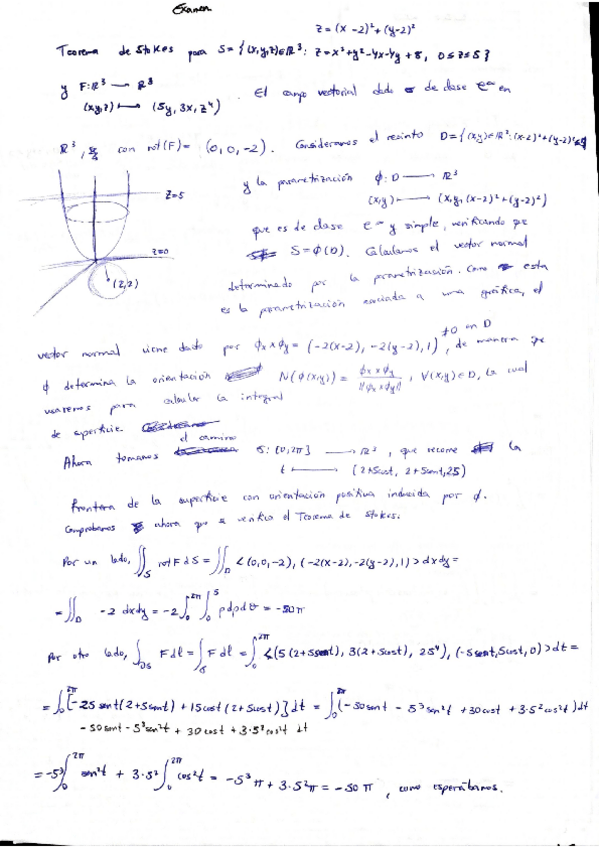 Examen
z=(x-2)²+(y-2)²
Teorema de Stokes para S={(x,y,z)∈ℝ³: z=x²+y²-4x-4y+8, 0≤z≤5}
y F:ℝ³ → ℝ³ . El campo vectorial dado es de clase C^∞ en
(x,y,z) ↦ (5y, 3x, z⁴)
ℝ³, con rot(F)= (0,0,-2). Consideramos el recinto D={(x,y)∈ℝ²:(x-2)²+(y-2)²≤
y la parametrización ϕ: D → ℝ³
(x,y) ↦ (x,y,(x-2)²+(y-2)²)
z=5
que es de clase C^∞ y simple, verificando que
z=0
S=ϕ(D). Calculamos el vector normal
(2,2)
determinado por la parametrización. Como esta
es la parametrización asociada a una gráfica, el
vector normal viene dado por ϕx×ϕy=(-2(x-2), -2(y-2), 1) ≠0 en D, de manera que
ϕ determina la orientación N(ϕ(x,y)) = ϕx×ϕy/‖ϕx×ϕy‖, ∀(x,y)∈D, la cual
usaremos para calcular la integral
de superficie.
Ahora tomamos el camino σ: [0,2π] → ℝ³, que recorre la
t ↦ (2+5cost, 2+5sent, 25)
frontera de la superficie con orientación positiva inducida por ϕ.
Comprobamos ahora que se verifica el Teorema de Stokes.
Por un lado, ∬_S rotF dS = ∬_D <(0,0,-2), (-2(x-2),-2(y-2),1)> dxdy =
= ∬_D -2 dxdy = -2∫_0^{2π}∫_0^5 ρdρdθ = -50π
Por otro lado, ∫_{∂S} Fdl = ∫_σ Fdl = ∫_0^{2π} <(5(2+5sent), 3(2+5cost), 25⁴), (-5sent,5cost,0)>dt =
= ∫_0^{2π} [-25sent(2+5sent) + 15cost(2+5cost)] dt = ∫_0^{2π} (-50sent - 5³sen²t + 30cost + 3·5²cos²t) dt
-50sent - 5³sen²t + 30cost + 3·5²cos²t dt
= -5³∫_0^{2π} sen²t + 3·5²∫_0^{2π} cos²t = -5³π + 3·5²π = -50π, como esperábamos.